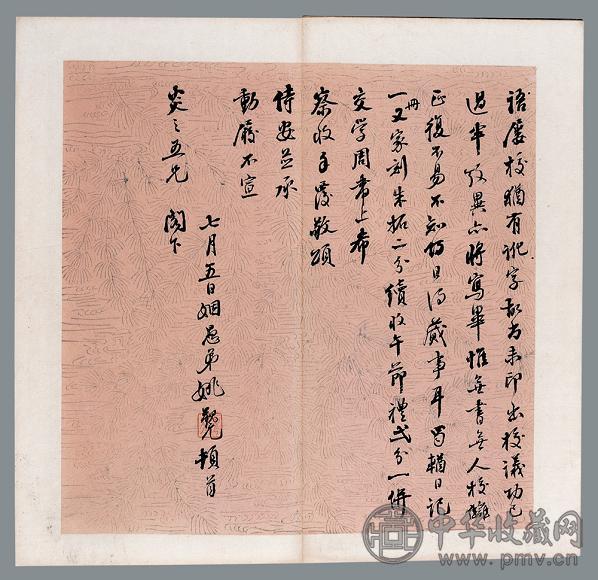 語屢校猶有訛字故尚未印出校議功已
過半攷異亦將寫畢惟無書無人校讎
正復不易不知何日得蕆事耳蜀輶日記
一冊又家刻朱拓二分續收午節禮弍分一併
交学周帶上希
察收手覆敬頌
侍安並承
動履不宣
炎之五兄 閣下
七月五日姻愚弟姚覲頓首
中华收藏网
www.pmv.cn